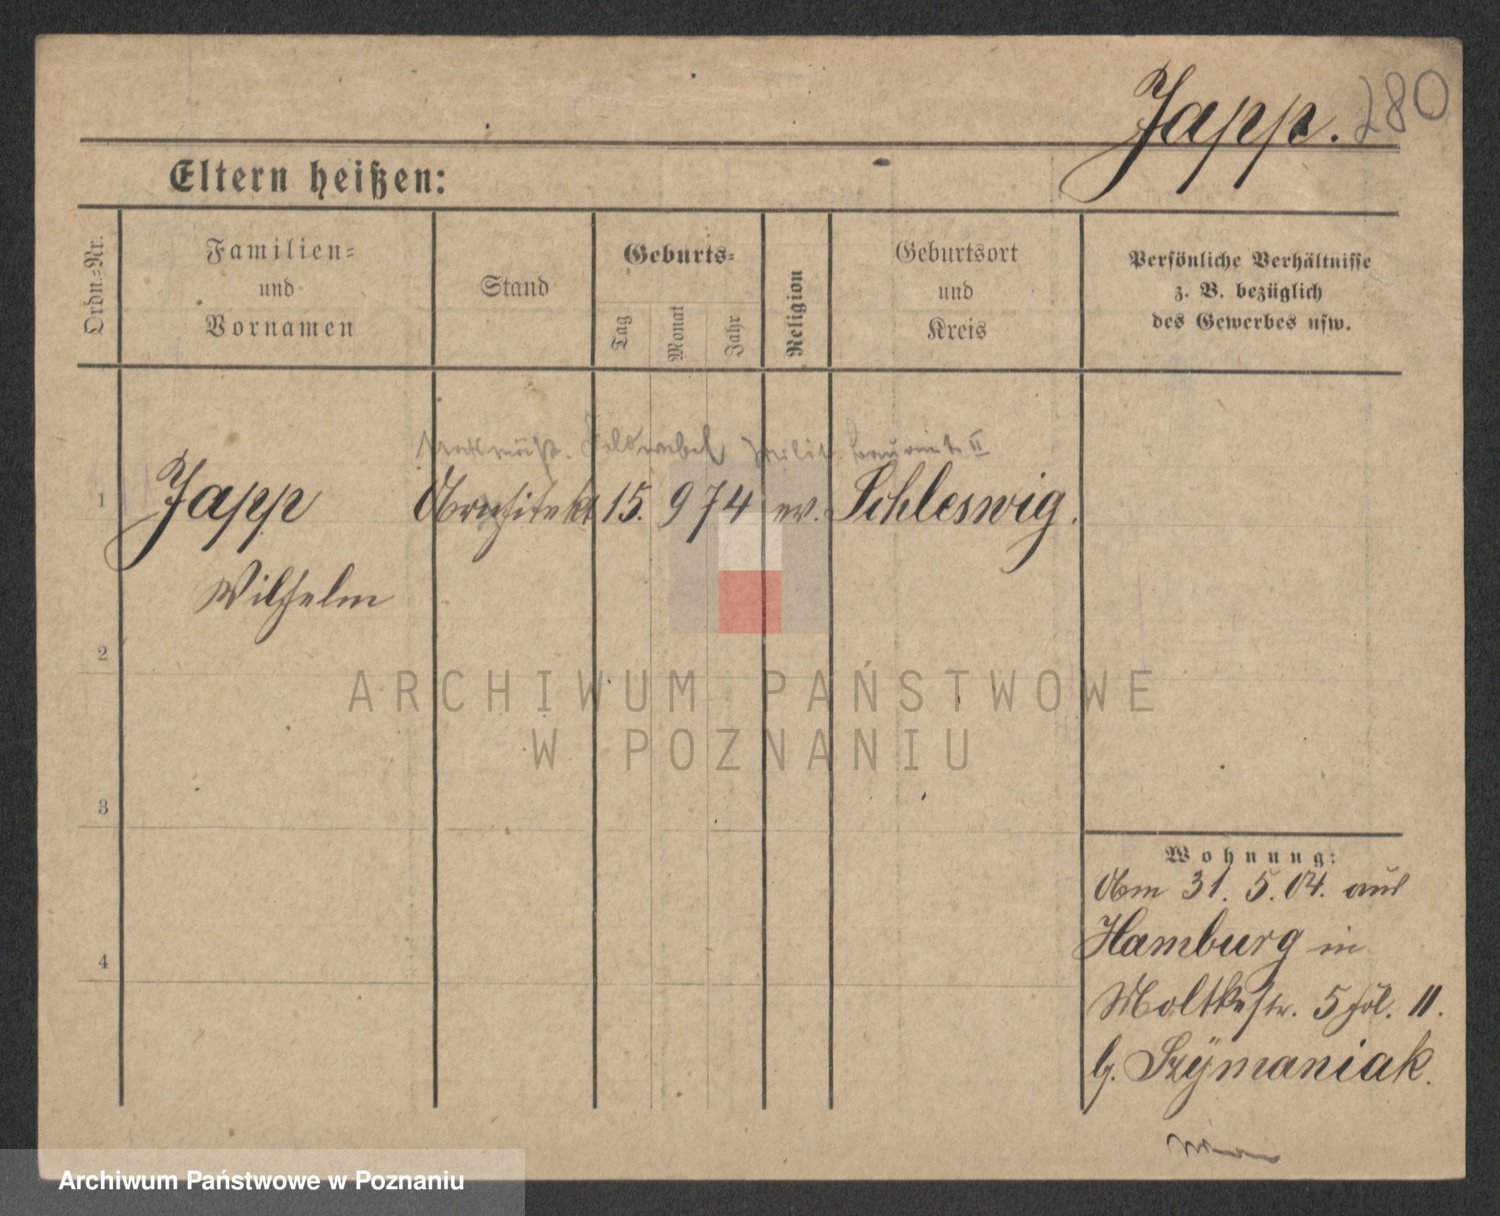 Japp. 280
Eltern heißen:
Ordn.=Nr.
Familien=
und
Vornamen
Stand
Geburts=
Tag
Monat
Jahr
Religion
Geburtsort
und
Kreis
Persönliche Verhältnisse
z. B. bezüglich
des Gewerbes usw.
Feldwebel Milit.
1 Japp Architekt 15. 9 74 ev. Schleswig.
Wilhelm
2
3
4
Wohnung:
Am 31. 5. 04. aus
Hamburg in
Moltkestr. 5 II.
b. Szÿmaniak.
ARCHIWUM PAŃSTWOWE
W POZNANIU
Archiwum Państwowe w Poznaniu